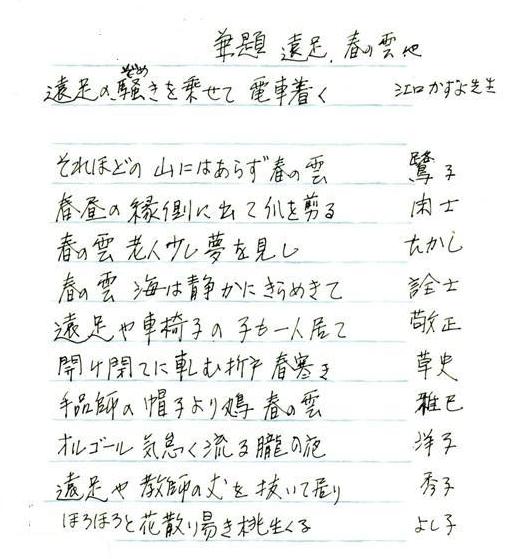 兼題 遠足、春の雲 他
遠足の騒ぎを乗せて 電車着く 江口かずよ先生
ぞめ
それほどの 山にはあらず 春の雲 鷺子
春昼の 縁側に出て 爪を剪る 閑士
春の雲 老人少し夢を見し たかし
春の雲 海は静かにきらめきて 詮士
遠足や車椅子の 子も一人居て 敬正
開け閉てに軋む折戸 春寒き 草史
手品師の 帽子より鳩 春の雲 雅巳
オルゴール 気怠く流る 朧の 洋子
遠足や 教師の丈を 抜いて居り 秀子
ほろほろと花散り易き桃生くる よし子